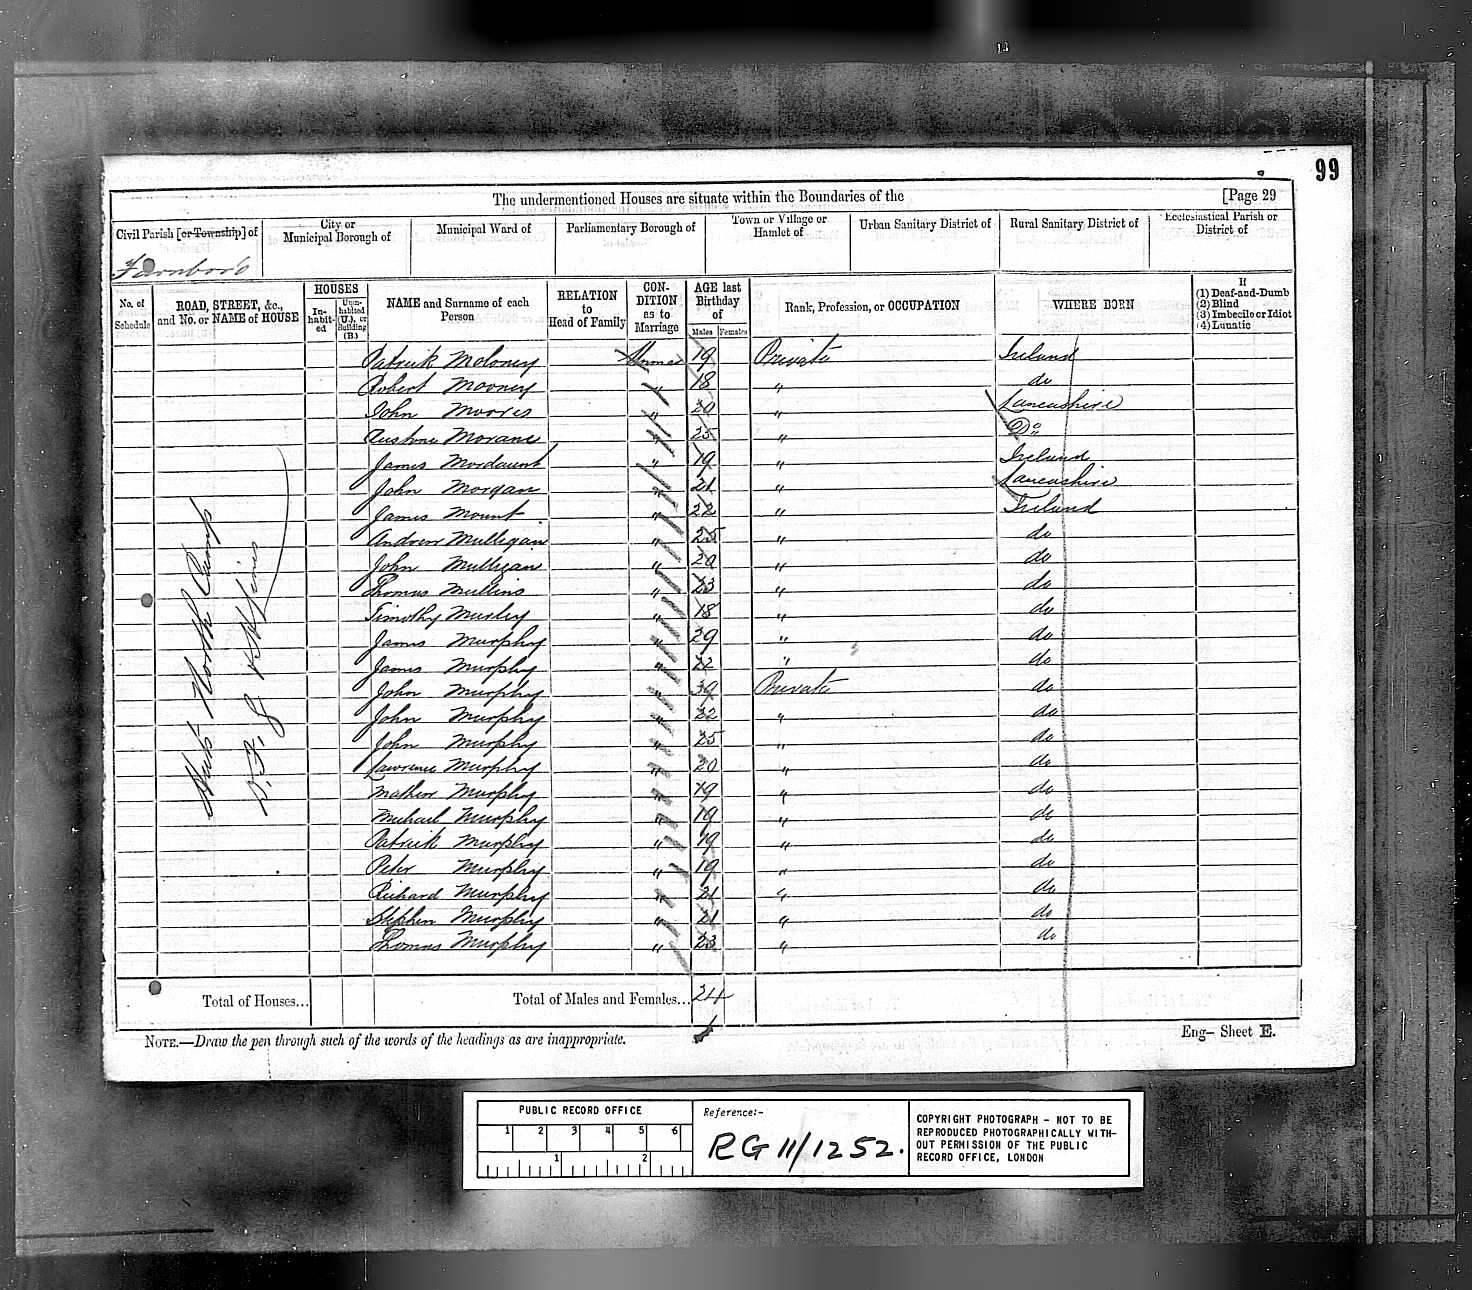 99
The undermentioned Houses are situate within the Boundaries of the [Page 29
Civil Parish [or Township] of
City or Municipal Borough of
Municipal Ward of
Parliamentary Borough of
Town or Village or Hamlet of
Urban Sanitary District of
Rural Sanitary District of
Ecclesiastical Parish or District of
Farnboro
No. of Schedule
ROAD, STREET, &c., and No. or NAME of HOUSE
HOUSES
In-habit-ed
Unin-habited (U.), or Building (B.)
NAME and Surname of each Person
RELATION to Head of Family
CON-DITION as to Marriage
AGE last Birthday of
Males Females
Rank, Profession, or OCCUPATION
WHERE BORN
If
(1) Deaf-and-Dumb
(2) Blind
(3) Imbecile or Idiot
(4) Lunatic
Huts North Camp
Patrick Moloney 19 Private Ireland
Robert Mooney " 18 " do
John Moores " 20 " Lancashire
Morane " 25 " Do
James Mordaunt " 19 " Ireland
John Morgan " 21 " Lancashire
James Mount " 22 " Ireland
Andrew Mulligan " 25 " do
John Mulligan " 20 " do
Thomas Mullins " 23 " do
Timothy " 18 " do
James Murphy " 29 " do
James Murphy " 22 " do
John Murphy " 39 Private do
John Murphy " 22 " do
John Murphy " 25 " do
Lawrence Murphy " 20 " do
Mathew Murphy " 19 " do
Michael Murphy " 19 " do
Patrick Murphy " 19 " do
Peter Murphy " 19 " do
Richard Murphy " 21 " do
Stephen Murphy " 21 " do
Thomas Murphy " 23 " do
Total of Houses...
Total of Males and Females... 24
NOTE.—Draw the pen through such of the words of the headings as are inappropriate.
Eng– Sheet E.
PUBLIC RECORD OFFICE
1 2 3 4 5 6
1 2
Reference:-
RG 11/1252.
COPYRIGHT PHOTOGRAPH – NOT TO BE
REPRODUCED PHOTOGRAPHICALLY WITH-
OUT PERMISSION OF THE PUBLIC
RECORD OFFICE, LONDON